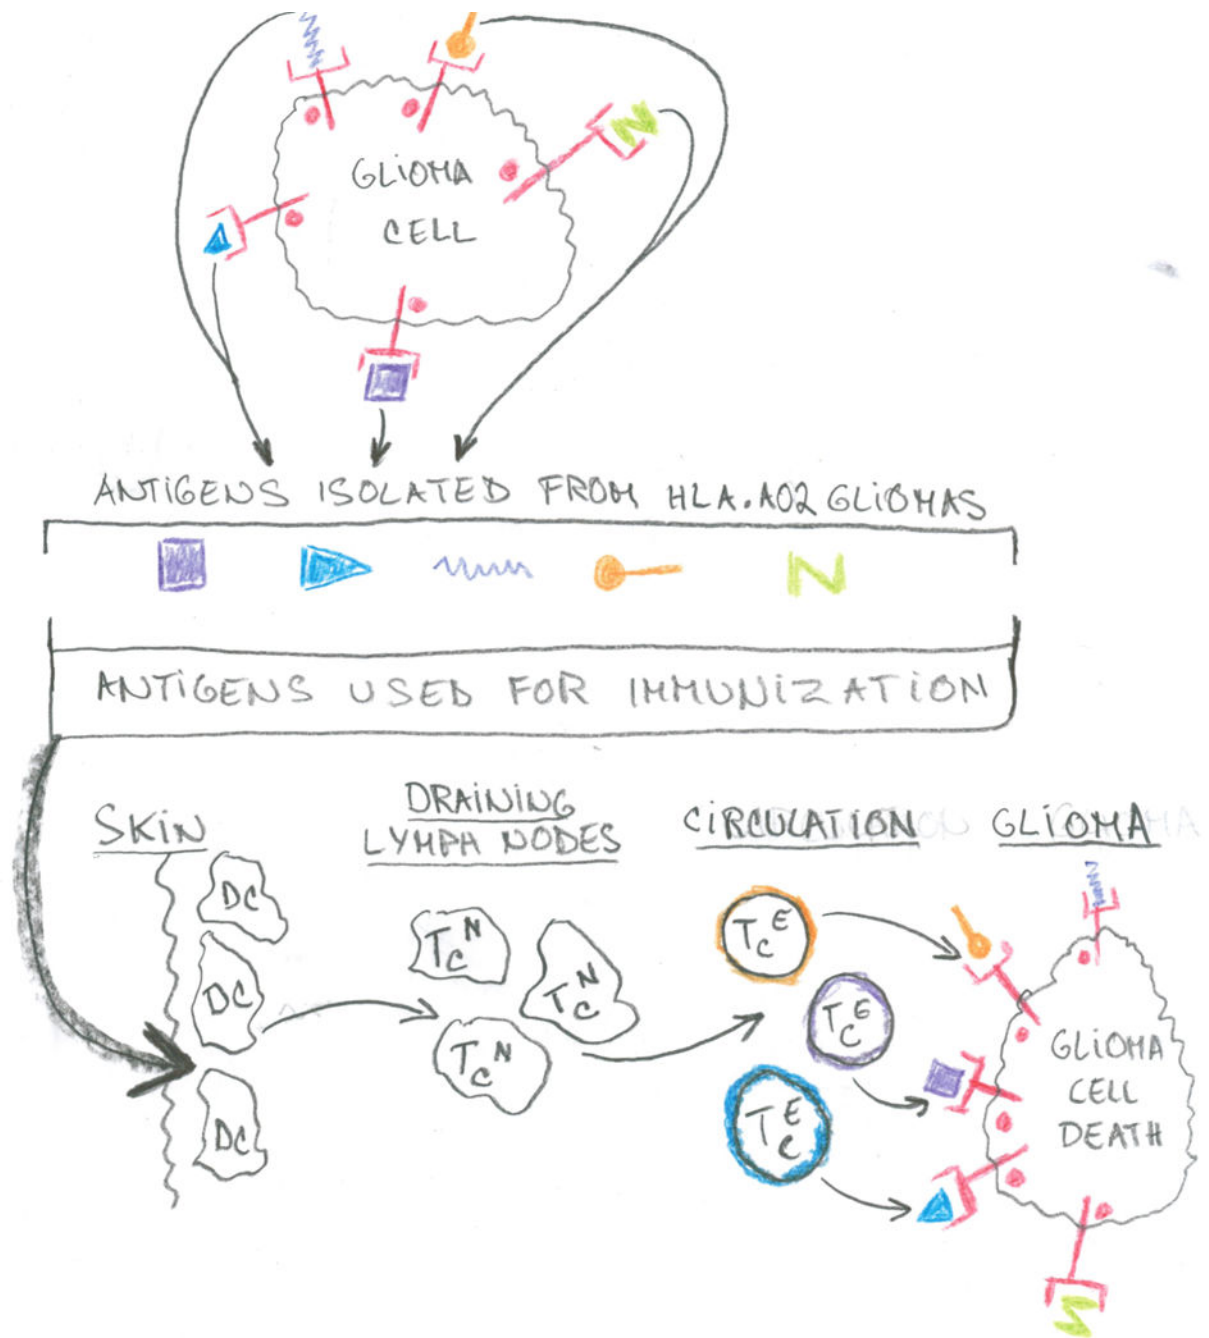 GLiOMA
CELL
ANTIGENS ISOLATED FROM HLA.A02 GLiOMAS
N
ANTIGENS USED FOR IMMUNIZATiON
SKiN
DRAiNiNG
LYMPH NODES
CiRCULATION
GLiOMA
DC
DC
DC
TCN
TCN
TCN
TCE
TCE
TCE
GLiOMA
CELL
DEATH